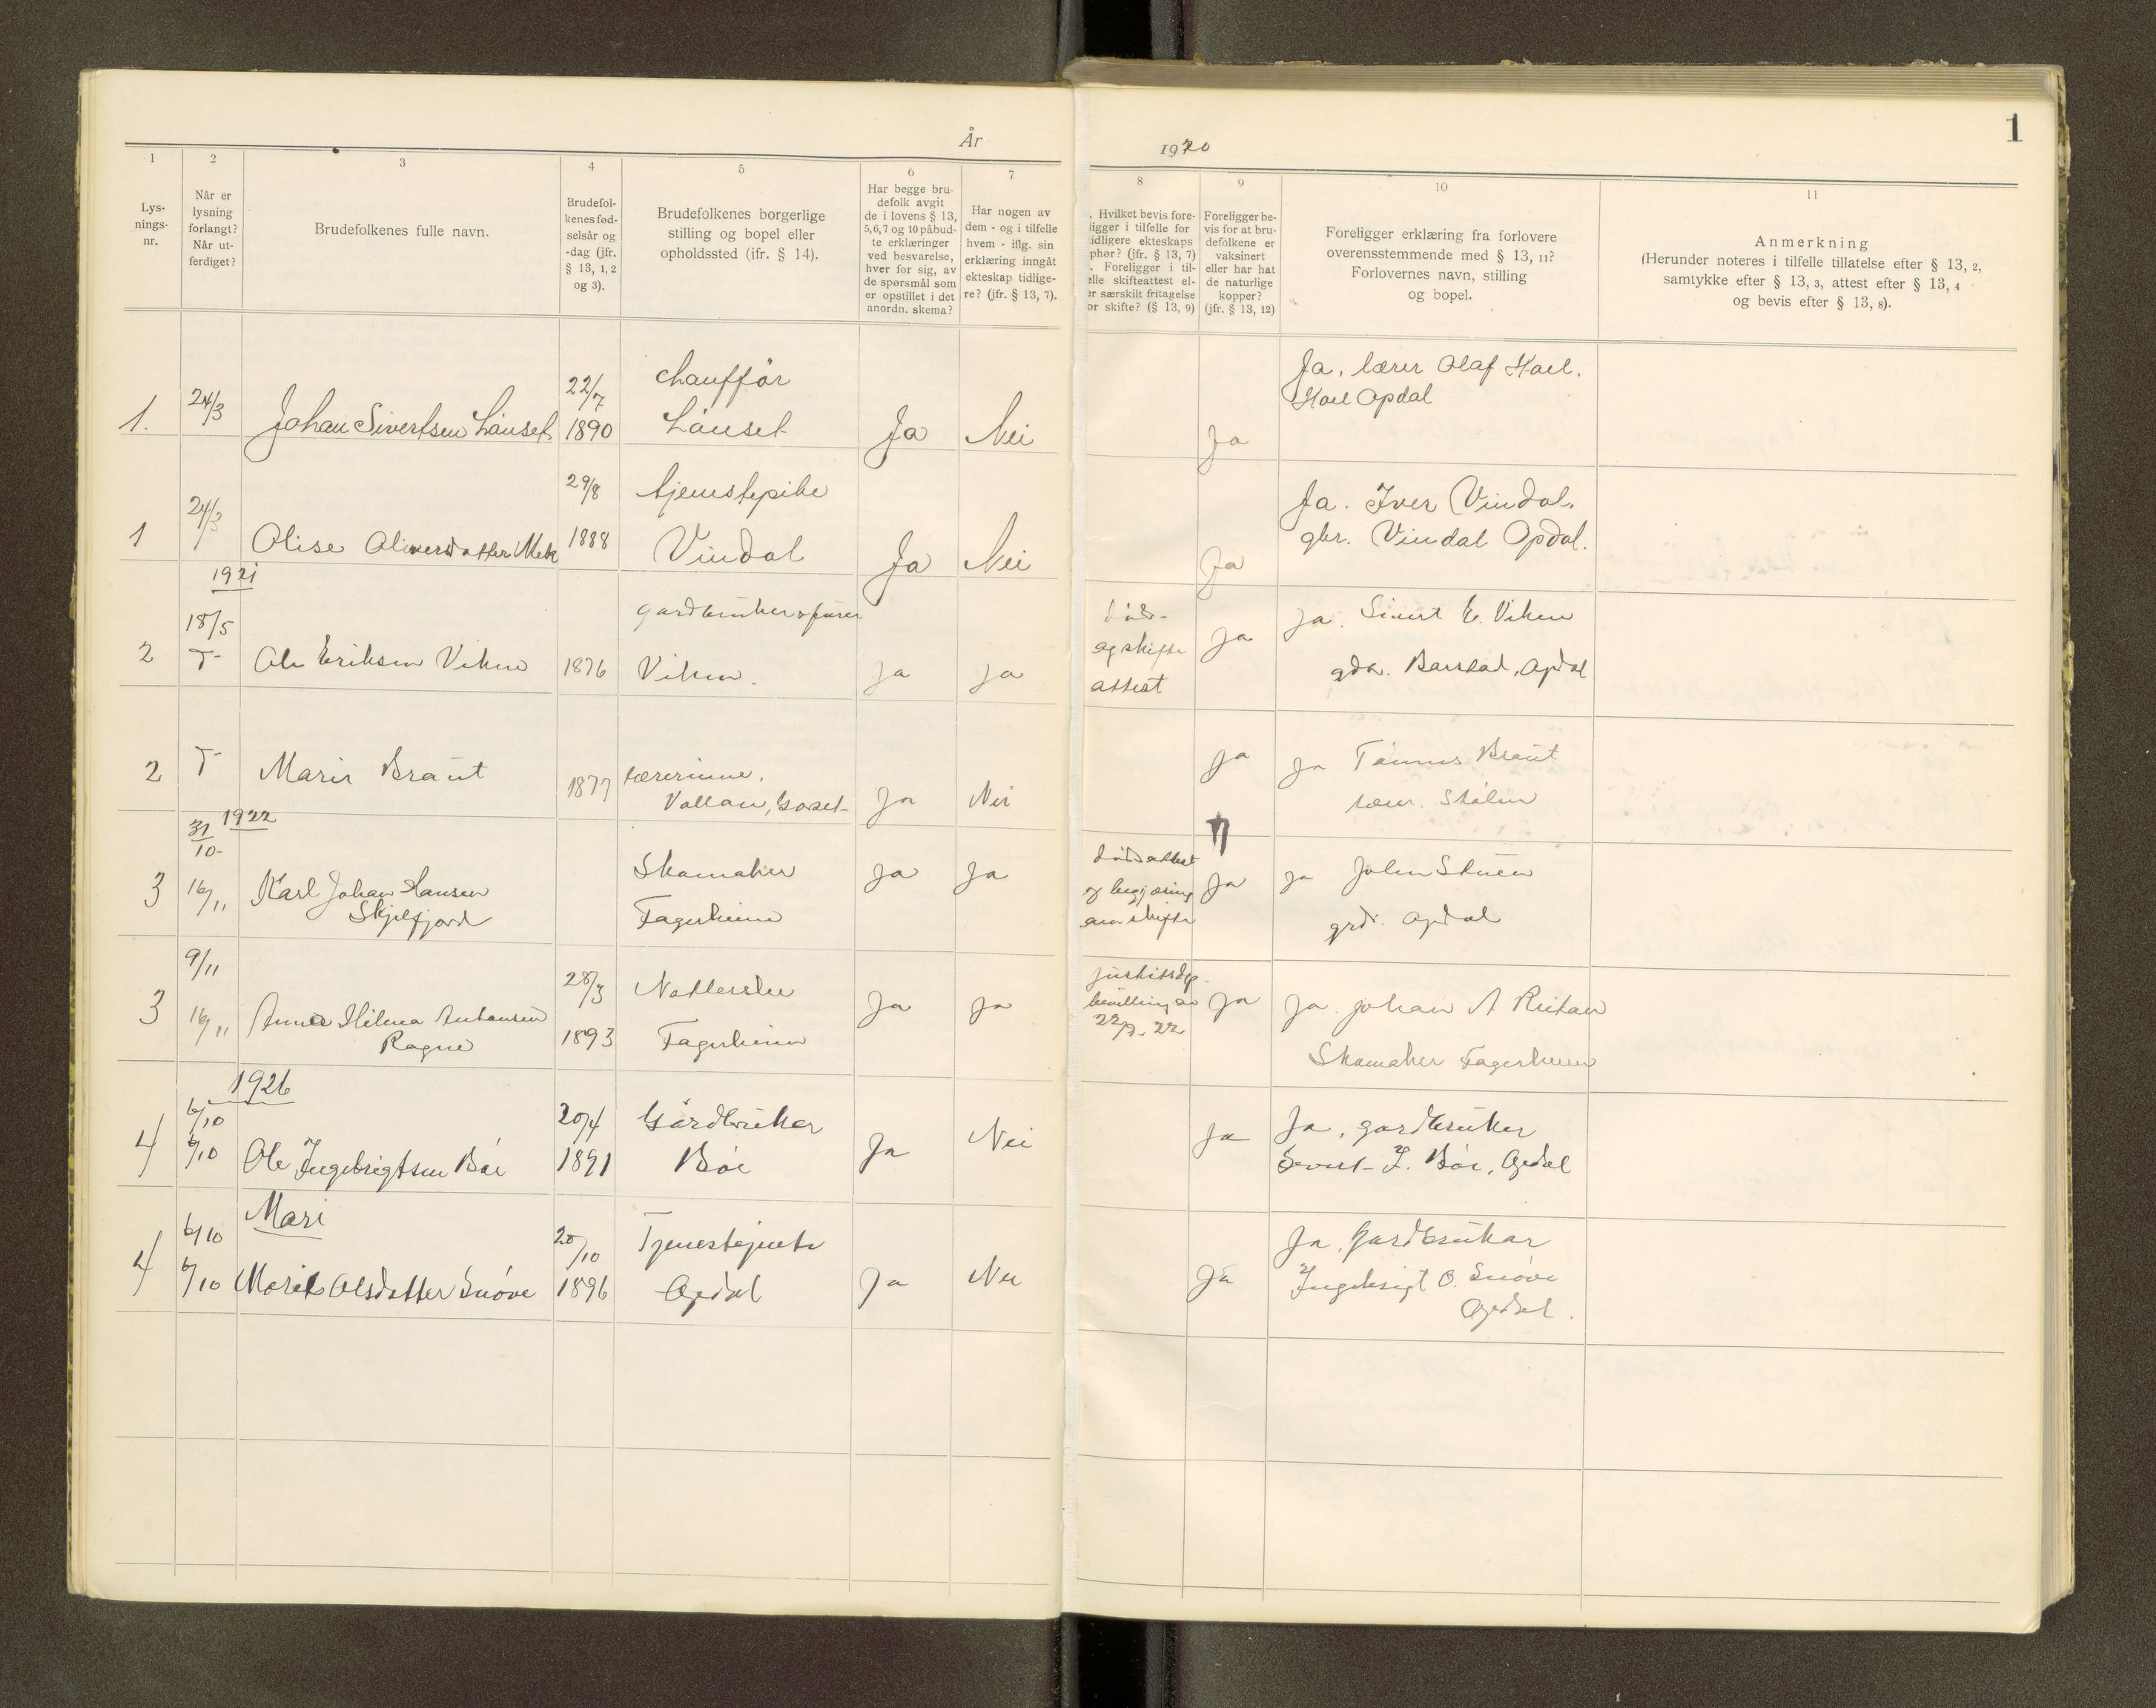 1
År 1920
1 2 3 4 5 6 7 8 9 10 11
Lys-
nings-
nr.
Når er
lysning
forlangt?
Når ut-
ferdiget?
Brudefolkenes fulle navn.
Brudefol-
kenes fød-
selsår og
-dag (jfr.
§ 13, 1, 2
og 3).
Brudefolkenes borgerlige
stilling og bopel eller
opholdssted (ifr. § 14).
Har begge bru-
defolk avgit
de i lovens § 13,
5, 6, 7 og 10 påbud-
te erklæringer
ved besvarelse,
hver for sig, av
de spørsmål som
er opstillet i det
anordn. skema?
Har nogen av
dem - og i tilfelle
hvem - iflg. sin
erklæring inngåt
ekteskap tidlige-
re? (jfr. § 13, 7).
. Hvilket bevis fore-
ligger i tilfelle for
idligere ekteskaps
phør? (jfr. § 13, 7)
. Foreligger i til-
elle skifteattest el-
er særskilt fritagelse
or skifte? (§ 13, 9)
Foreligger be-
vis for at bru-
defolkene er
vaksinert
eller har hat
de naturlige
kopper?
(jfr. § 13, 12)
Foreligger erklæring fra forlovere
overensstemmende med § 13, 11?
Forlovernes navn, stilling
og bopel.
Anmerkning
(Herunder noteres i tilfelle tillatelse efter § 13, 2,
samtykke efter § 13, 3, attest efter § 13, 4
og bevis efter § 13, 8).
1. 24/3 Johan Sivertsen Låuset 22/7 1890
chaufför
Låuset
Ja Nei Ja
Ja, lærer Olaf Hoel.
Hoel Opdal
1 24/3 Olise 29/8 1888
tjenstepike
Vindal
Ja Nei Ja
Ja. Iver Vindal.
gbr. Vindal Opdal.
1921
2 18/5 Ole Eriksen Viken 1876
Viken.
Ja Ja
døds-
og skifte
attest
Ja
Ja. Sivert E. Viken
Opdal
2 Marie Braut 1877
lærerinne.
Vollan,
Ja Nei Ja
Ja Braut
lærer.
1922
3 31/10 16/11 Karl Johan Hansen
Skjelfjord
Skomaker
Fagerheim
Ja Ja
dødsattest
og begjæring
om skifte
Ja
Ja John Stuen
Opdal
3 9/11 16/11 Hilma Antonsen
Ragne
28/3 1893
Fagerheim
Ja Ja
justitsdep.
bevilling av
22/9-22
Ja
Ja Johan A Reitan
Skomaker Fagerheim
1926
4 6/10 6/10 Ole Ingebrigtsen Böe 20/4 1891
Gårdbruker
Böe
Ja Nei Ja
Ja, gardbruker
Sivert I. Böe, Opdal
Mari
4 6/10 6/10 Marit Olsdatter Snöve 20/10 1896
Tjenestejente
Opdal
Ja Nei Ja
Ja, Gardbruker
Ingebrigt O. Snöve
Opdal.